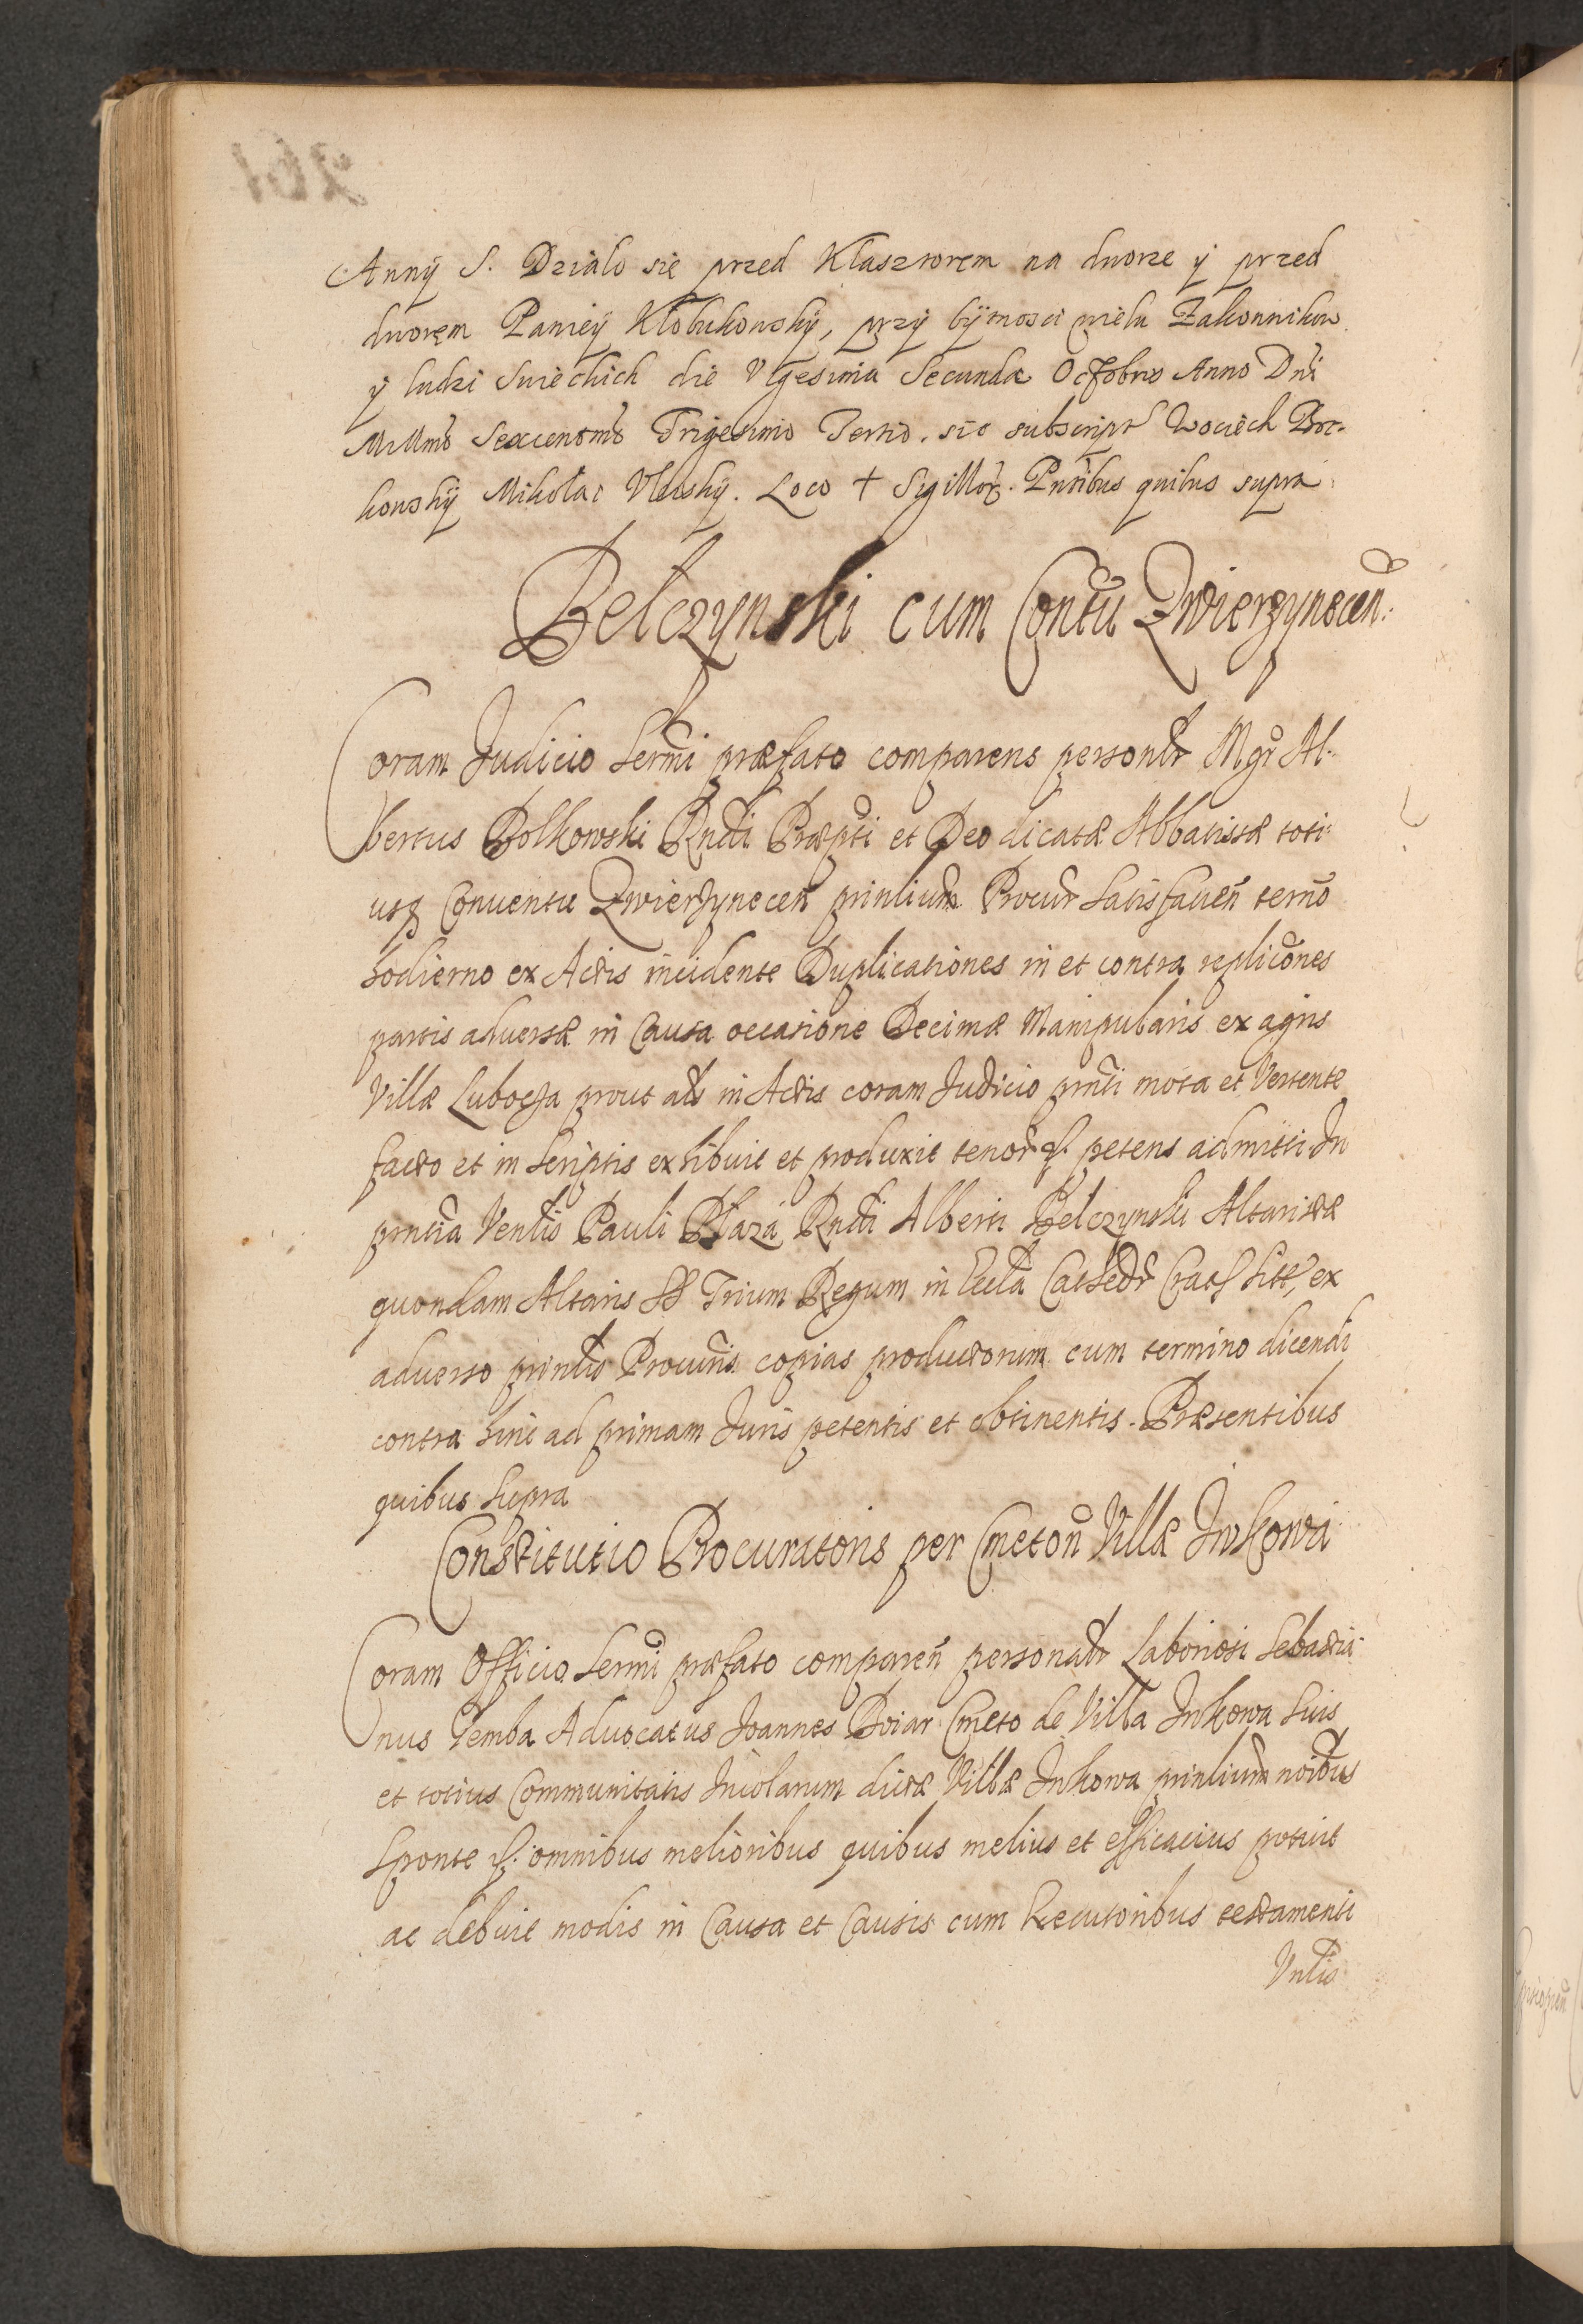 Anny S. Dzialo sie przed Klasztorem na dworze y przed
dworem Paniey Klobukowsky, przy bytnosci wielu Zakonnikow
y ludzi Swiechich die Vigesima Secunda Octobris Anno Dni
Millmo Sexcentmo Trigesimo Tertio. sic subscript Wociech Bor-
kowsky Mikolai Vleisky. Loco + Sigillor. Pntibus quibus supra
Belczynski cum Contu Zwierzynecen:
Coram Judicio Sermi præfato comparens personlr Mgr Al-
bertus Bolkowski Rndi Præpti et Deo dicatæ Abbatissæ toti-
usq Conventu Zwierzynecen prinlium Procur satisfacien termo
hodierno ex Actis incidente Duplicationes in et contra replicones
partis adversæ in Causa occasione Decimæ Manipularis ex agris
Villæ Lubocza prout als in Actis coram Judicio prnti mota et Vertente
facto et in scriptis exhibuit et produxit tenor petens admitti In
prntia Venlis Pauli Płaza Rndi Alberti Belczynski Altaristæ
quondam Altaris SS Trium Regum in Eccla Cathedr Crac sitt, ex
adverso prinlis Procuris copias productorum cum termino dicendi
contra hinc ad primam Juris petentis et obtinentis. Præsentibus
quibus supra
Constitutio Procuratoris per Cmeton Villæ Jwkowa
Coram Officio Sermi præfato comparen personalr Laboriosi Sebastia-
nus Gemba Advocatus Joannes Boiar Cmeto de Villa Jwkowa suis
et totius Communitatis Incolarum dictæ Villæ Jwkowa prinlium noibus
sponte omnibus melioribus quibus melius et efficacius potuit
ac debuit modis in Causa et Causis cum Executoribus testamenti
Vnlis